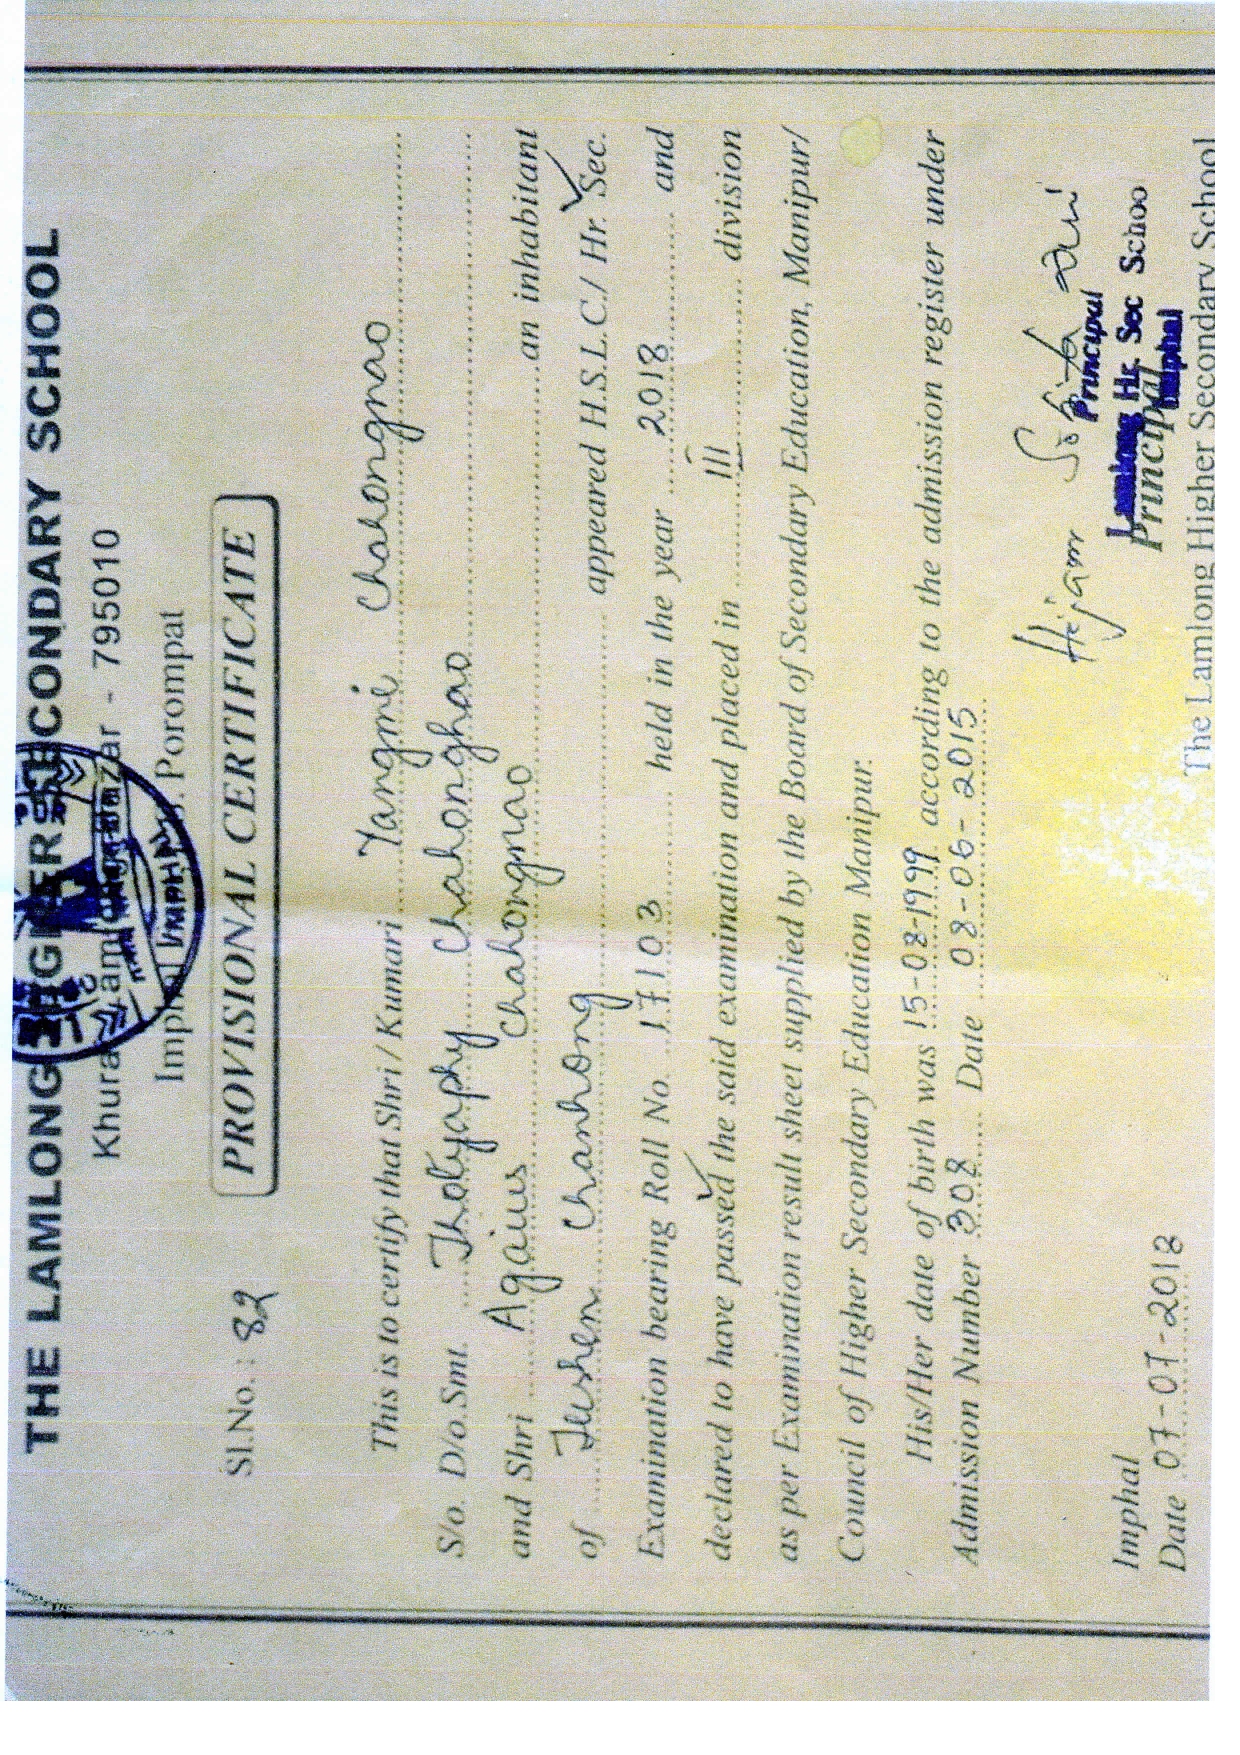 THE LAMLONG HIGHER SECONDARY SCHOOL
Khurai Lamlong Bazar - 795010
Imphal P.O. Porompat
IMPHAL
Sl.No. : 82
PROVISIONAL CERTIFICATE
This is to certify that Shri / Kumari Yangmi Chahongnao
S/o. D/o.Smt. Thotyaphy Chahonghao
and Shri Agaius Chahongnao an inhabitant
of Jushen Chanhong appeared H.S.L.C./ Hr. Sec.
Examination bearing Roll No. 17103 held in the year 2018 and
declared to have passed the said examination and placed in III division
as per Examination result sheet supplied by the Board of Secondary Education, Manipur/
Council of Higher Secondary Education Manipur.
His/Her date of birth was 15-08-1999 according to the admission register under
Admission Number 308 Date 08-06-2015
Hijam
Principal
Lamlong Hr. Sec Schoo
Imphal
Principal
The Lamlong Higher Secondary School
Imphal
Date 07-07-2018